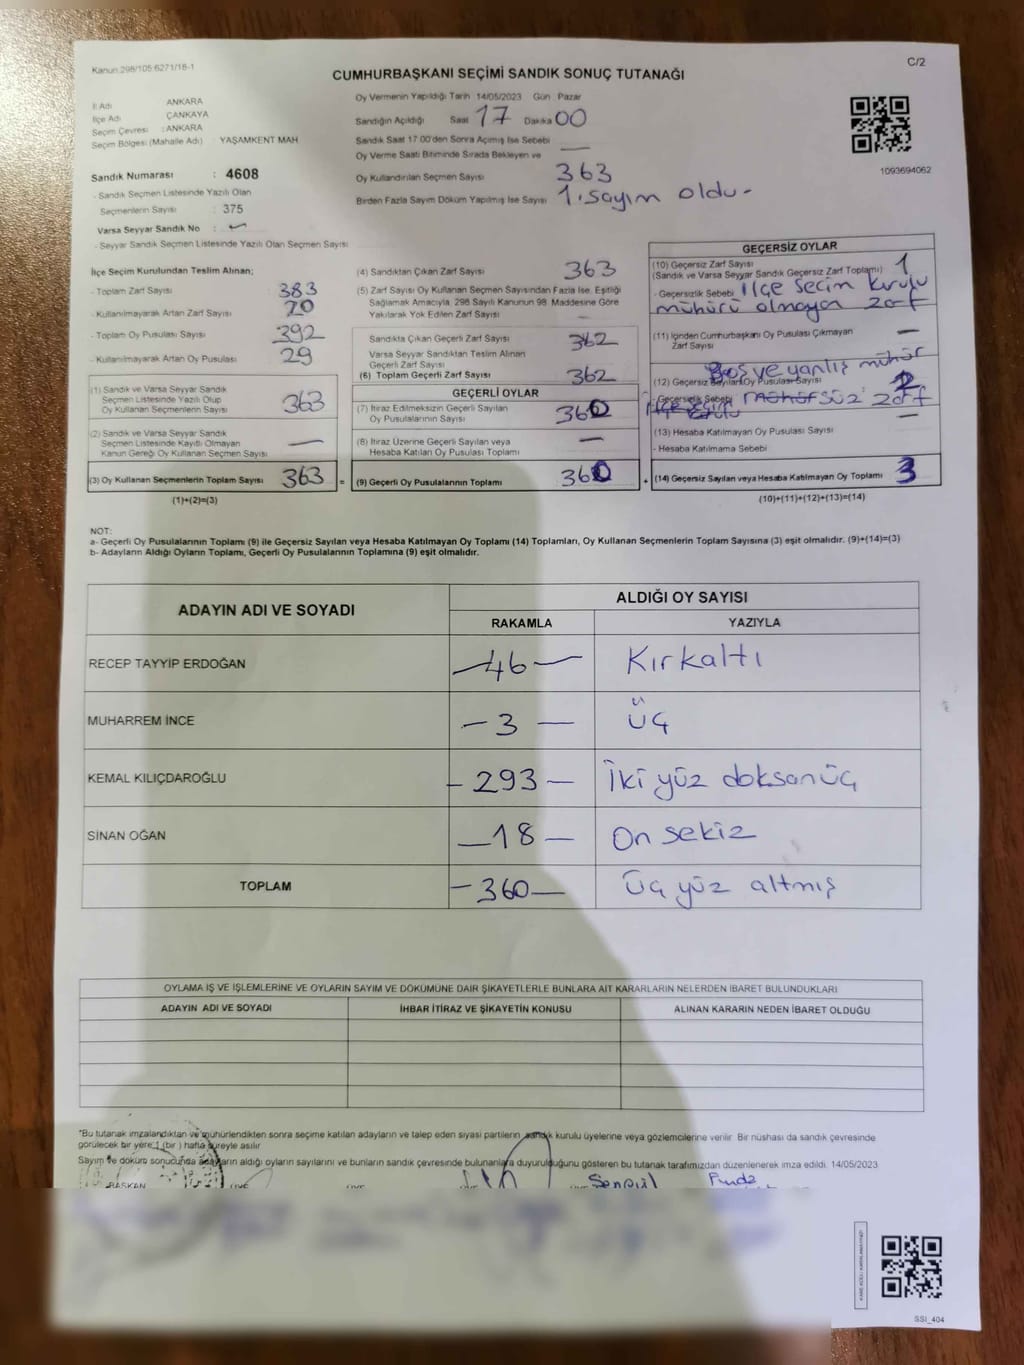 Kanun 298/105 6271/18-1
C/2
CUMHURBAŞKANI SEÇİMİ SANDIK SONUÇ TUTANAĞI
İl Adı ANKARA
İlçe Adı ÇANKAYA
Seçim Çevresi : ANKARA
Seçim Bölgesi (Mahalle Adı) YAŞAMKENT MAH
Sandık Numarası : 4608
- Sandık Seçmen Listesinde Yazılı Olan
Seçmenlerin Sayısı : 375
Varsa Seyyar Sandık No :
- Seyyar Sandık Seçmen Listesinde Yazılı Olan Seçmen Sayısı
Oy Vermenin Yapıldığı Tarih 14/05/2023 Gün Pazar
Sandığın Açıldığı Saat 17 Dakika 00
Sandık Saat 17.00'den Sonra Açılmış İse Sebebi —
Oy Verme Saati Bitiminde Sırada Bekleyen ve
Oy Kullandırılan Seçmen Sayısı 363
Birden Fazla Sayım Döküm Yapılmış İse Sayısı 1. sayım oldu -
1093694062
İlçe Seçim Kurulundan Teslim Alınan;
- Toplam Zarf Sayısı : 383
- Kullanılmayarak Artan Zarf Sayısı : 20
- Toplam Oy Pusulası Sayısı : 392
- Kullanılmayarak Artan Oy Pusulası : 29
(1) Sandık ve Varsa Seyyar Sandık
Seçmen Listesinde Yazılı Olup
Oy Kullanan Seçmenlerin Sayısı 363
(2) Sandık ve Varsa Seyyar Sandık
Seçmen Listesinde Kayıtlı Olmayan
Kanun Gereği Oy Kullanan Seçmen Sayısı —
(3) Oy Kullanan Seçmenlerin Toplam Sayısı 363 =
(1)+(2)=(3)
(4) Sandıktan Çıkan Zarf Sayısı 363
(5) Zarf Sayısı Oy Kullanan Seçmen Sayısından Fazla İse, Eşitliği
Sağlamak Amacıyla, 298 Sayılı Kanunun 98. Maddesine Göre
Yakılarak Yok Edilen Zarf Sayısı —
Sandıkta Çıkan Geçerli Zarf Sayısı 362
Varsa Seyyar Sandıktan Teslim Alınan
Geçerli Zarf Sayısı
(6) Toplam Geçerli Zarf Sayısı 362
GEÇERLİ OYLAR
(7) İtiraz Edilmeksizin Geçerli Sayılan
Oy Pusulalarının Sayısı 360
(8) İtiraz Üzerine Geçerli Sayılan veya
Hesaba Katılan Oy Pusulası Toplamı —
(9) Geçerli Oy Pusulalarının Toplamı 360 +
GEÇERSİZ OYLAR
(10) Geçersiz Zarf Sayısı
(Sandık ve Varsa Seyyar Sandık Geçersiz Zarf Toplamı) 1
- Geçersizlik Sebebi İlçe Seçim kurulu
mührü olmayan zarf
(11) İçinden Cumhurbaşkanı Oy Pusulası Çıkmayan
Zarf Sayısı —
Boş ve yanlış mühür
(12) Geçersiz Sayılan Oy Pusulası Sayısı 2
- Geçersizlik Sebebi mühürsüz zarf
(13) Hesaba Katılmayan Oy Pusulası Sayısı —
- Hesaba Katılmama Sebebi
(14) Geçersiz Sayılan veya Hesaba Katılmayan Oy Toplamı 3
(10)+(11)+(12)+(13)=(14)
NOT:
a- Geçerli Oy Pusulalarının Toplamı (9) ile Geçersiz Sayılan veya Hesaba Katılmayan Oy Toplamı (14) Toplamları, Oy Kullanan Seçmenlerin Toplam Sayısına (3) eşit olmalıdır. (9)+(14)=(3)
b- Adayların Aldığı Oyların Toplamı, Geçerli Oy Pusulalarının Toplamına (9) eşit olmalıdır.
ADAYIN ADI VE SOYADI
ALDIĞI OY SAYISI
RAKAMLA YAZIYLA
RECEP TAYYİP ERDOĞAN —46— Kırkaltı
MUHARREM İNCE —3— üç
KEMAL KILIÇDAROĞLU -293— İki yüz doksanüç
SİNAN OĞAN —18— On sekiz
TOPLAM —360— Üç yüz altmış
OYLAMA İŞ VE İŞLEMLERİNE VE OYLARIN SAYIM VE DÖKÜMÜNE DAİR ŞİKAYETLERLE BUNLARA AİT KARARLARIN NELERDEN İBARET BULUNDUKLARI
ADAYIN ADI VE SOYADI İHBAR İTİRAZ VE ŞİKAYETİN KONUSU ALINAN KARARIN NEDEN İBARET OLDUĞU
*Bu tutanak imzalandıktan ve mühürlendikten sonra seçime katılan adayların ve talep eden siyasi partilerin sandık kurulu üyelerine veya gözlemcilerine verilir. Bir nüshası da sandık çevresinde
görülecek bir yere 1 (bir ) hafta süreyle asılır
Sayım ve döküm sonucunda adayların aldığı oyların sayılarını ve bunların sandık çevresinde bulunanlara duyurulduğunu gösteren bu tutanak tarafımızdan düzenlenerek imza edildi. 14/05/2023
BAŞKAN
SSI_404